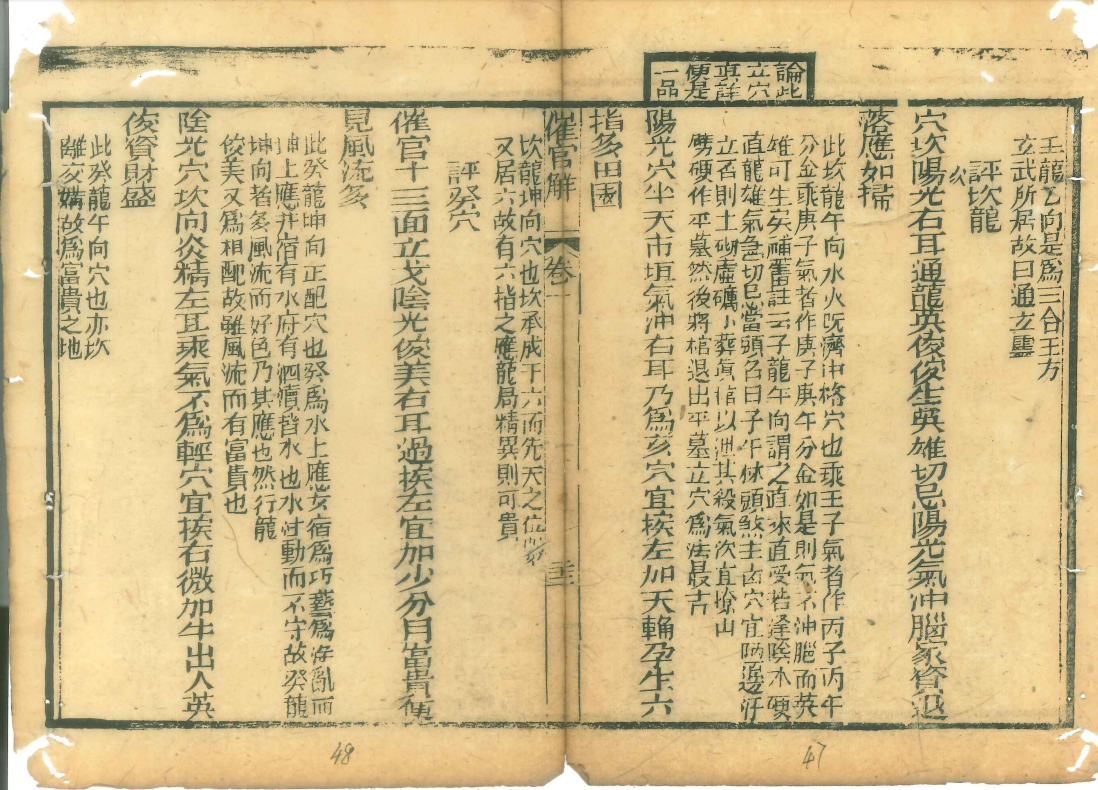 論此
立穴
真詳
便是
一品
壬龍乙向是為三合王方
玄武所居故曰通玄靈
評坎龍
穴坎陽光右耳通龍英俊俊生英雄切忌陽光氣冲腦家資退
落應如掃
此坎龍午向水火既濟中格穴也乘王子氣者作丙子丙午
分金乘庚子氣者作庚子庚午分金如是則氣不冲腦而英
雄可生矣補舊註云子龍午向謂之直來直受若逢陰木硬
直龍雄氣急切忌當頭名曰子午休頭煞主凶穴宜
立否則土砌虛壙小葬真棺以泄其殺氣次宜撩山
劈硬作平墓然後將棺退出平墓立穴為法最古
陽光穴坐天市垣氣冲右耳乃為亥穴宜挨左加天輪孕生六
指多田園
催官解 卷一
坎龍坤向穴也坎承成干六而先天之位
又居六故有六指之應龍局精異則可貴
評癸穴
催官十三面立戈陰光俊美右耳過挨左宜加少分目富貴便
見風流多
此癸龍坤向正配穴也癸為水上應女宿為巧藝為淫亂而
坤上應井宿有水府有泗瀆皆水也水性動而不守故癸龍
坤向者多風流而好色乃其應也然行龍
俊美又為相配故雖風流而有富貴也
陰光穴坎向炎精左耳乘氣不為輕穴宜挨右微加牛出人英
俊資財盛
此癸龍午向穴也亦坎
離交媾故為富貴之地
47
48